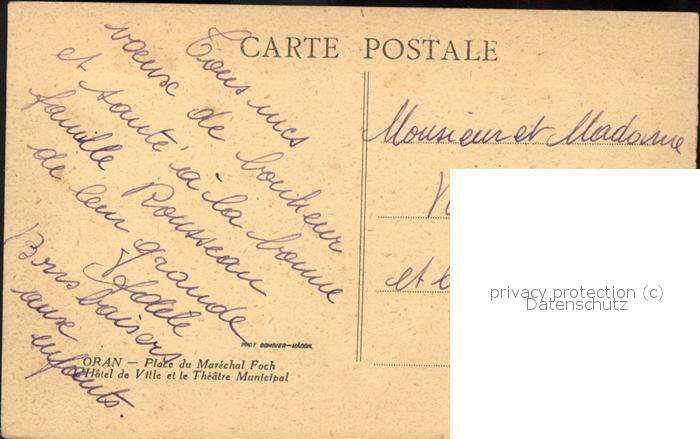 CARTE POSTALE
Tous mes
vœux de bonheur
et santé à la bonne
famille Rousseau
de leur grande
Adèle
Bons baisers
aux
enfants.
Monsieur et Madame
et
PHOT COMBIER-MÂCON
ORAN — Place du Maréchal Foch
L'Hôtel de Ville et le Théâtre Municipal
privacy protection (c)
Datenschutz